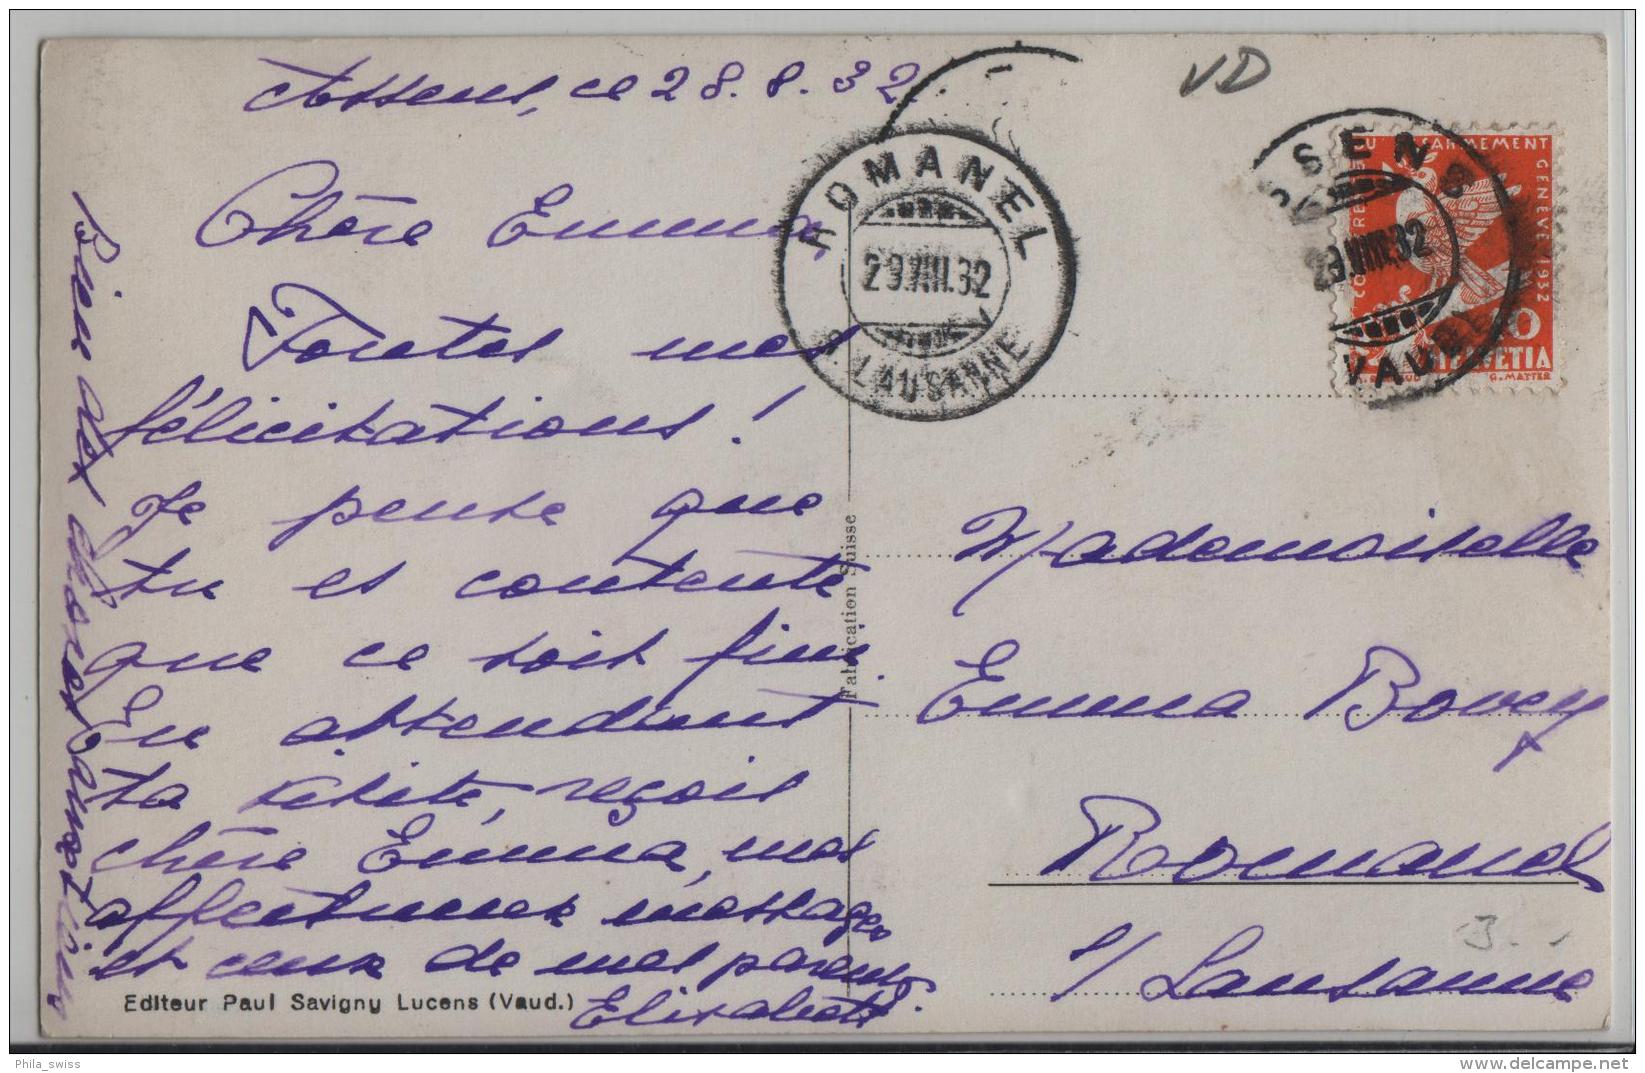 Assens, ce 28.8.32.
Chère Emma
Toutes mes
félicitations!
Je pense que
tu es contente
que ce soit fini.
En attendant
ta visite, reçois
chère Emma, mes
affectueux messages
et ceux de mes parents.
Elisabeth.
Bien des choses
Editeur Paul Savigny Lucens (Vaud.)
Fabrication Suisse
VD
ROMANEL
29.VIII.32
s. LAUSANNE
SSENS
29.VIII.32
VAUD
DU DÉSARMEMENT GENÈVE 1932
10
HELVETIA
G. MATTER
Mademoiselle
Emma Bovey
Romanel
s/ Lausanne
3.
Phila_swiss